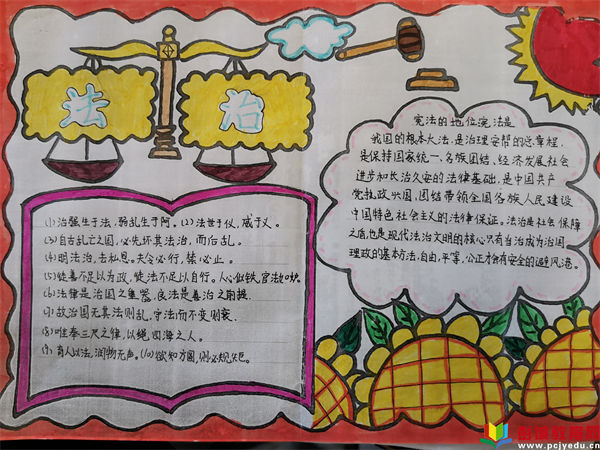 法
治
(1)治强生于法，弱乱生于阿。(2)法者于仪，咸于义。
(3)自古乱亡之国，必先坏其法治，而后乱。
(4)明法治，去私恩。夫令必行，禁必止。
(5)徒善不足以为政，徒法不足以自行。人心似铁，官法如炉。
(6)法律是治国之重器，良法是善治之前提。
(7)故治国无其法则乱，守法而不变则衰。
(8)唯奉三尺之律，以绳四海之人。
(9)育人以法，润物无声。(10)欲知方圆，则必规矩。
宪法的地位宪法是
我国的根本大法，是治理安帮的总章程，
是保持国家统一、名族团结、经济发展社会
进步和长治久安的法律基础，是中国共产
党执政兴国，团结带领全国各族人民建设
中国特色社会主义的法律保证。法治是社会保障
之盾，也是现代法治文明的核心只有当治成为治国
理政的基本方法，自由，平等，公正才会有安全的避风港。
www.pcjyedu.cn